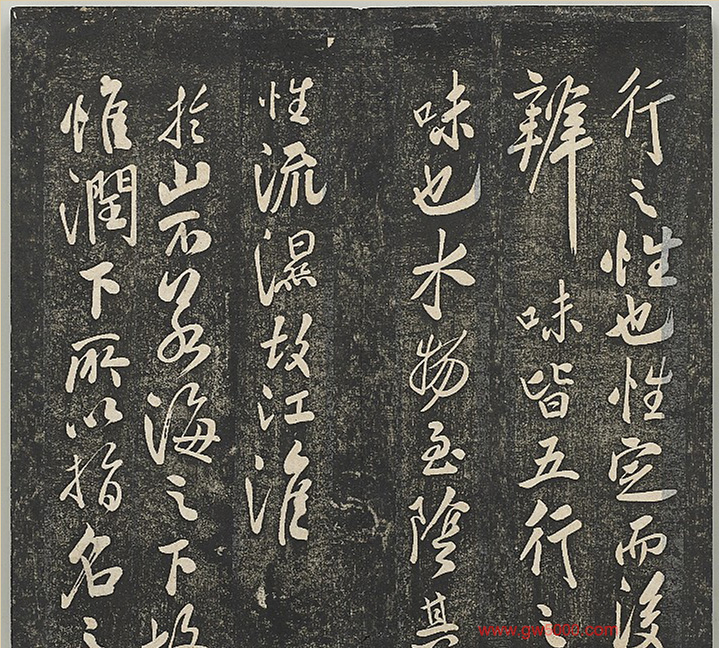 行之性也性定而後
辨味皆五行之
味也水物至陰其
性流濕故江淮
於山不若海之下故
惟潤下所以指名之
www.gw5000.com